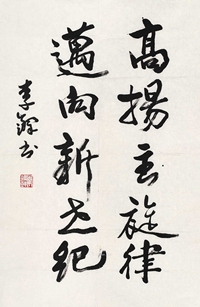 高揚主旋律
邁向新世纪
李鐸书